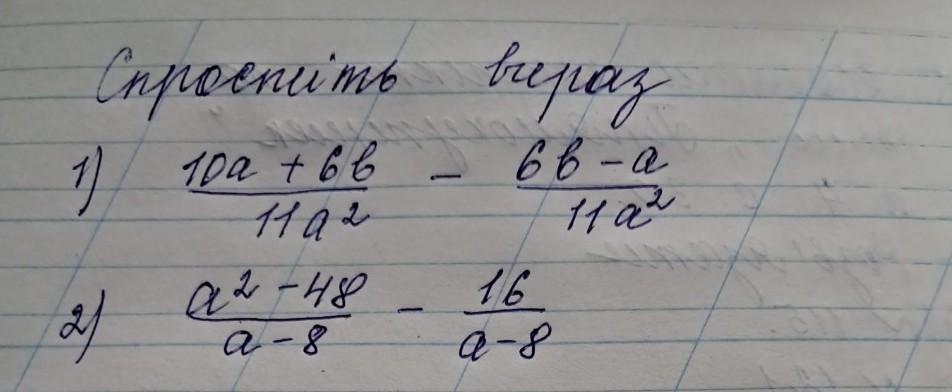 Спростіть вираз
1) (10a + 6b)/(11a²) - (6b - a)/(11a²)
2) (a² - 48)/(a - 8) - 16/(a - 8)